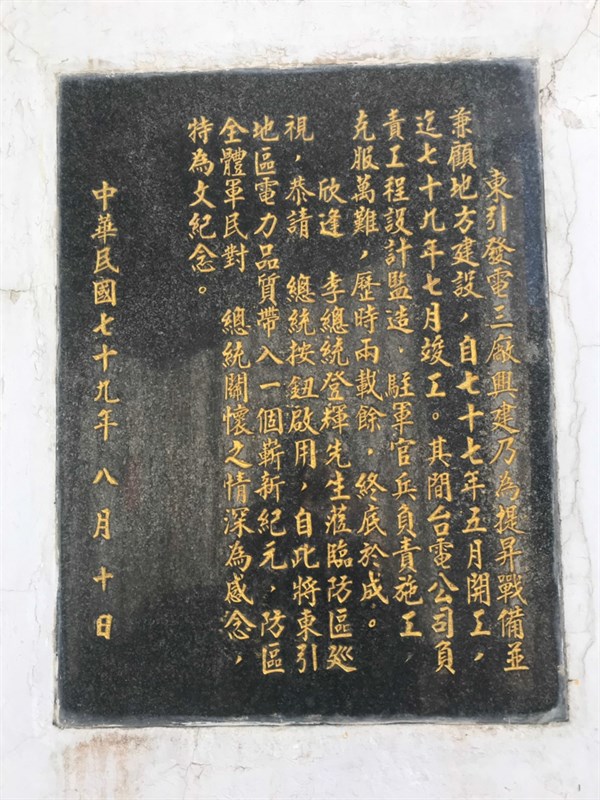 東引發電三廠興建乃為提昇戰備並
兼顧地方建設，自七十七年五月開工，
迄七十九年七月竣工。其間台電公司負
責工程設計監造，駐軍官兵負責施工，
克服萬難，歷時兩載餘，終底於成。
欣逢　李總統登輝先生蒞臨防區巡
視，恭請　總統按鈕啟用，自此將東引
地區電力品質帶入一個嶄新紀元，防區
全體軍民對　總統關懷之情深為感念，
特為文紀念。
中華民國七十九年八月十日